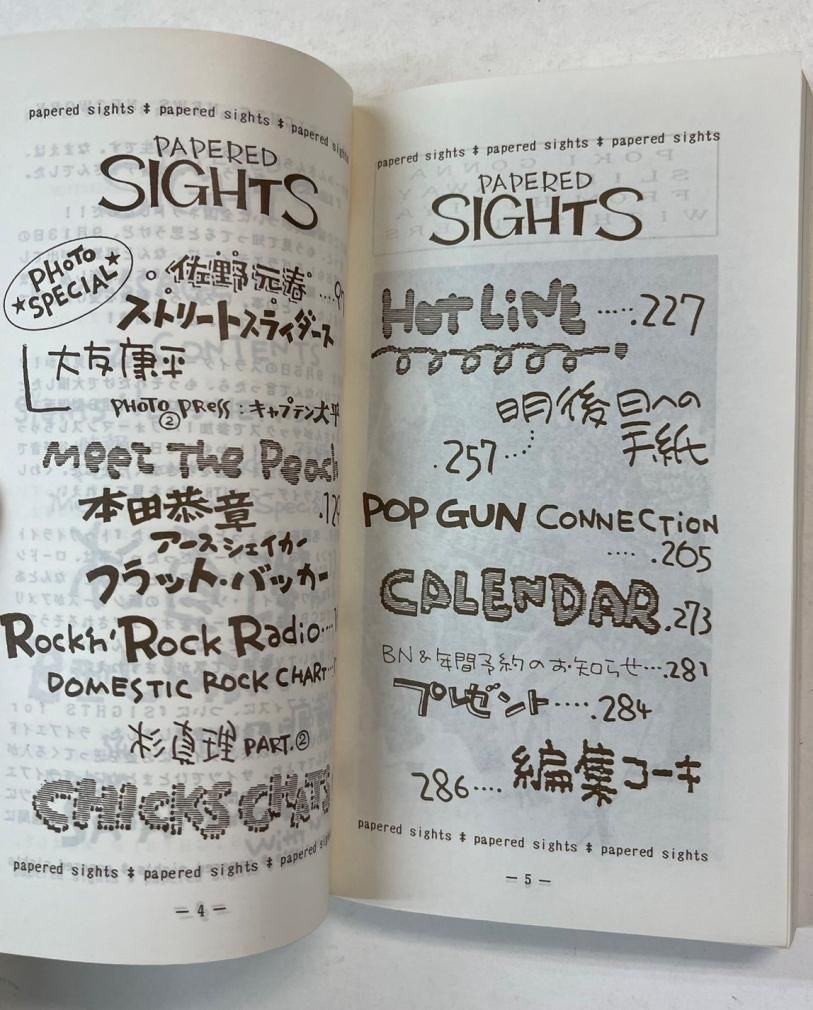 papered sights ‡ papered sights ‡ papered sights
PAPERED
SIGHTS
PHOTO
★SPECIAL★
佐野元春 ....
ストリートスライダーズ
大友康平
PHOTO PRESS : キャプテン大平
②
Meet The Peach
本田恭章
アースシェイカー
フラット・バッカー
Rock'n' Rock Radio
DOMESTIC ROCK CHART
杉真理 PART.②
CHICKS CHATS
papered sights ‡ papered sights ‡ papered sights
— 4 —
papered sights ‡ papered sights ‡ papered sights
PAPERED
SIGHTS
HOT LINE ......227
明後日への
手紙
.257....
POP GUN CONNECTION
.... .265
CALENDAR.273
BN & 年間予約のお知らせ....281
プレゼント.....284
286.... 編集コーキ
papered sights ‡ papered sights ‡ papered sights
— 5 —